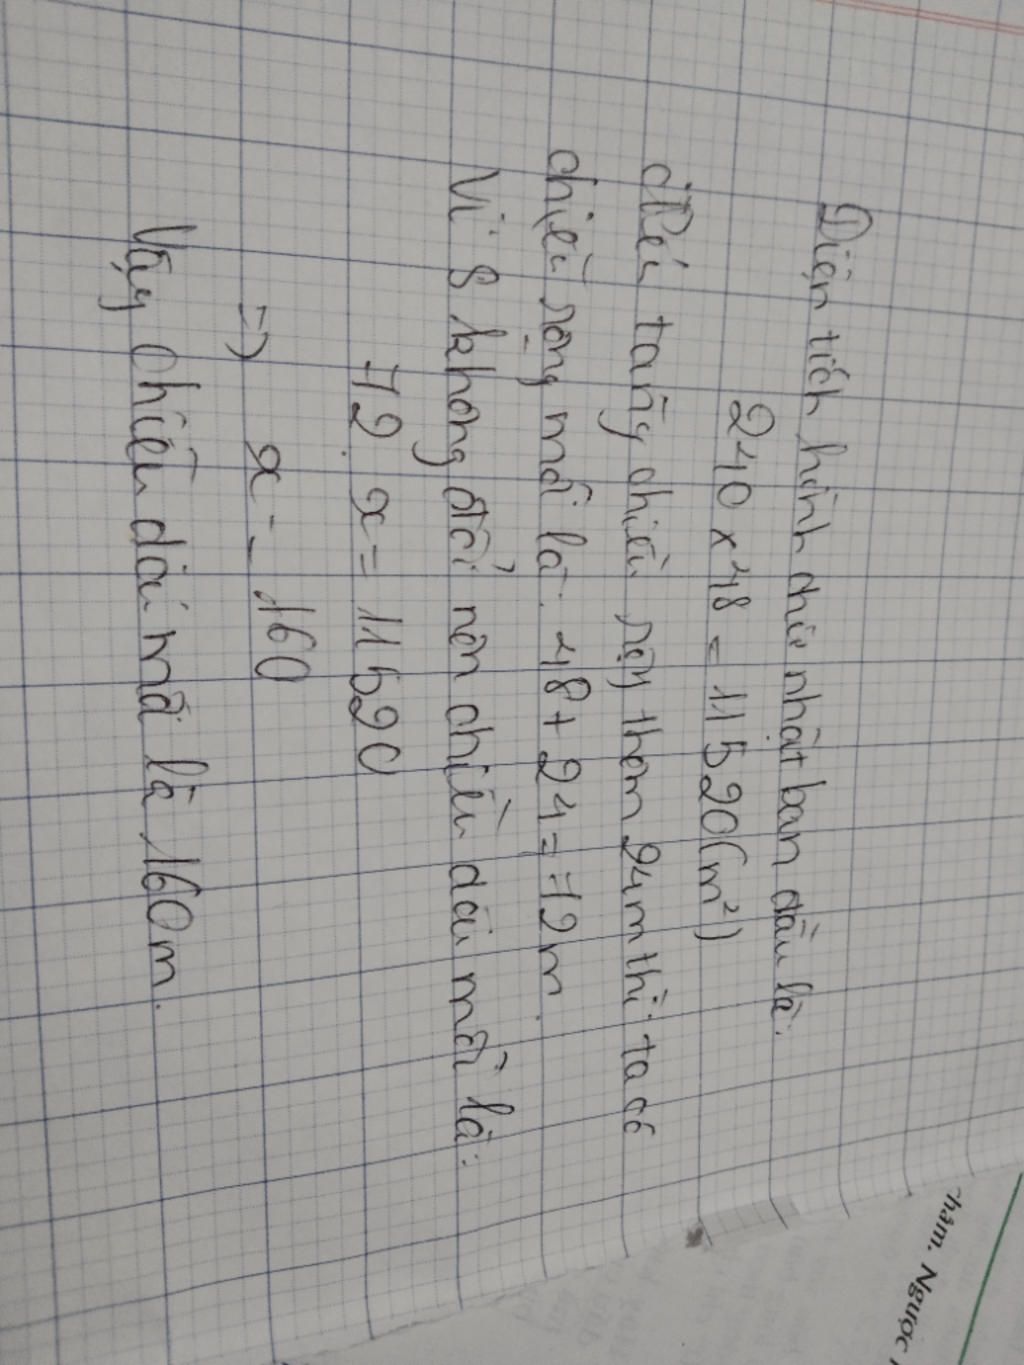 Diện tích hình chữ nhật ban đầu là:
240 x 48 = 11520 (m²)
Nếu tăng chiều rộng thêm 24m thì ta có
chiều rộng mới là: 48 + 24 = 72 m.
Vì S không đổi nên chiều dài mới là:
72. x = 11520
=> x = 160
Vậy chiều dài mới là 160m.
hậm. Ngược